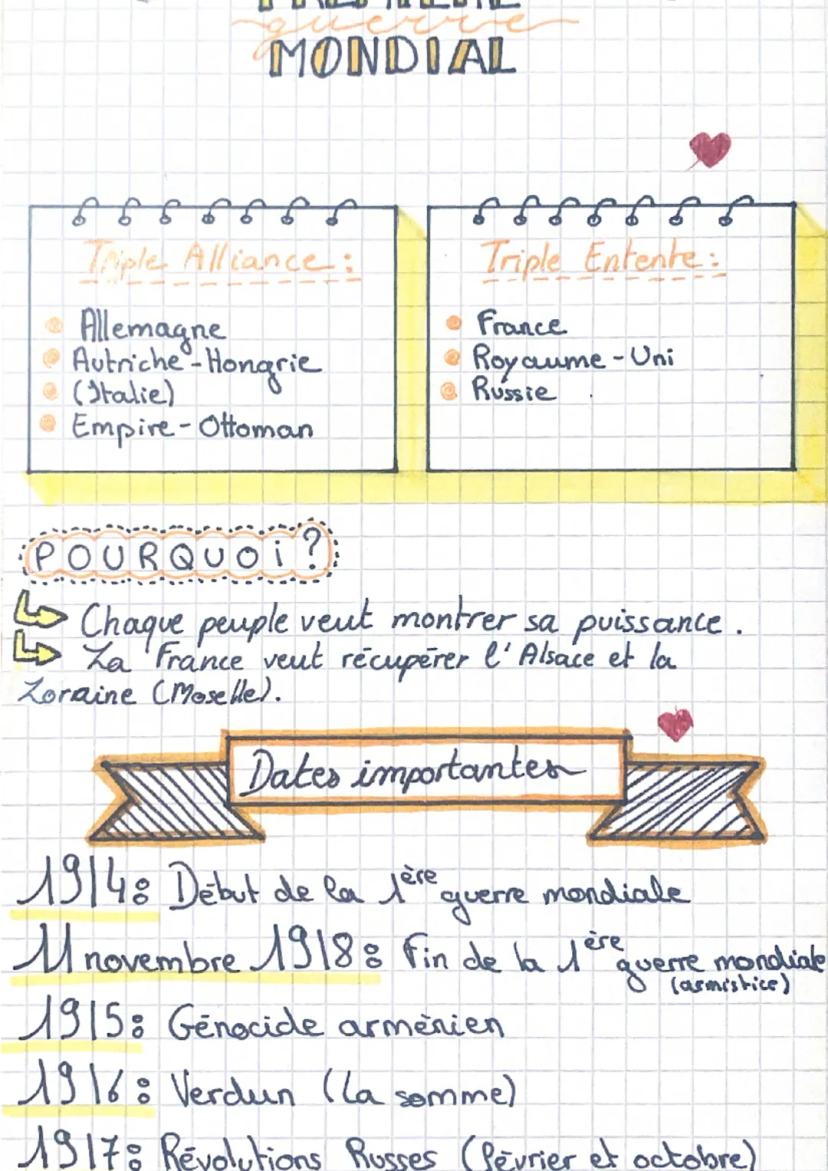 PREMIÈRE
guerre
MONDIAL
Triple Alliance :
Allemagne
Autriche-Hongrie
(Italie)
Empire-Ottoman
Triple Entente :
France
Royaume-Uni
Russie
POURQUOi ?
Chaque peuple veut montrer sa puissance.
La France veut récupérer l'Alsace et la
Loraine (Moselle).
Dates importantes
1914 : Début de la 1ère guerre mondiale
11 novembre 1918 : Fin de la 1ère guerre mondiale
(armistice)
1915 : Génocide arménien
1916 : Verdun (la somme)
1917 : Révolutions Russes (février et octobre)